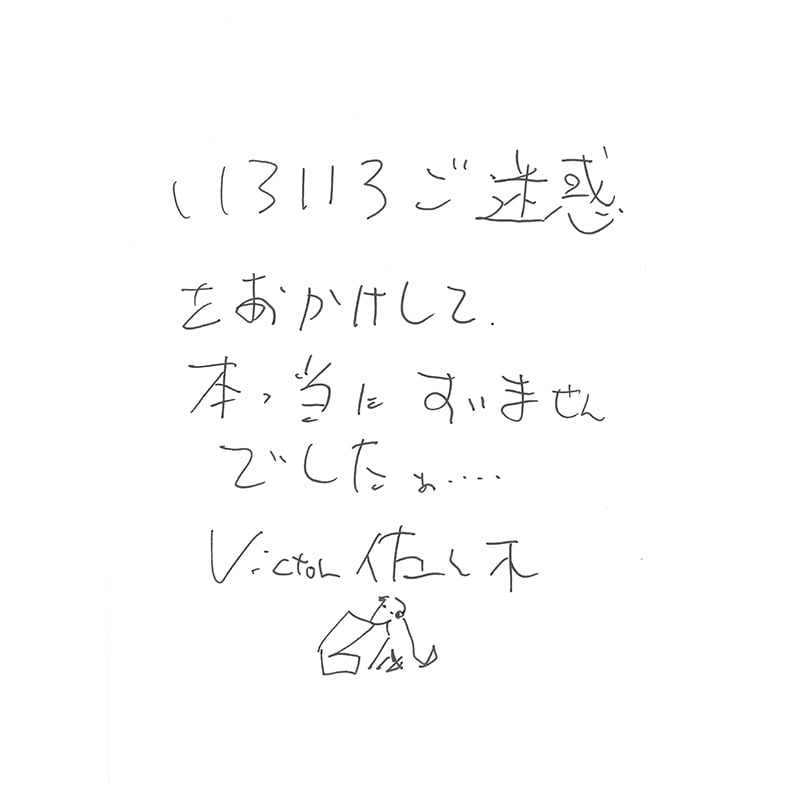 いろいろご迷惑
をおかけして.
本っ当にすいません
でしたぉ....
Victor 佐々木